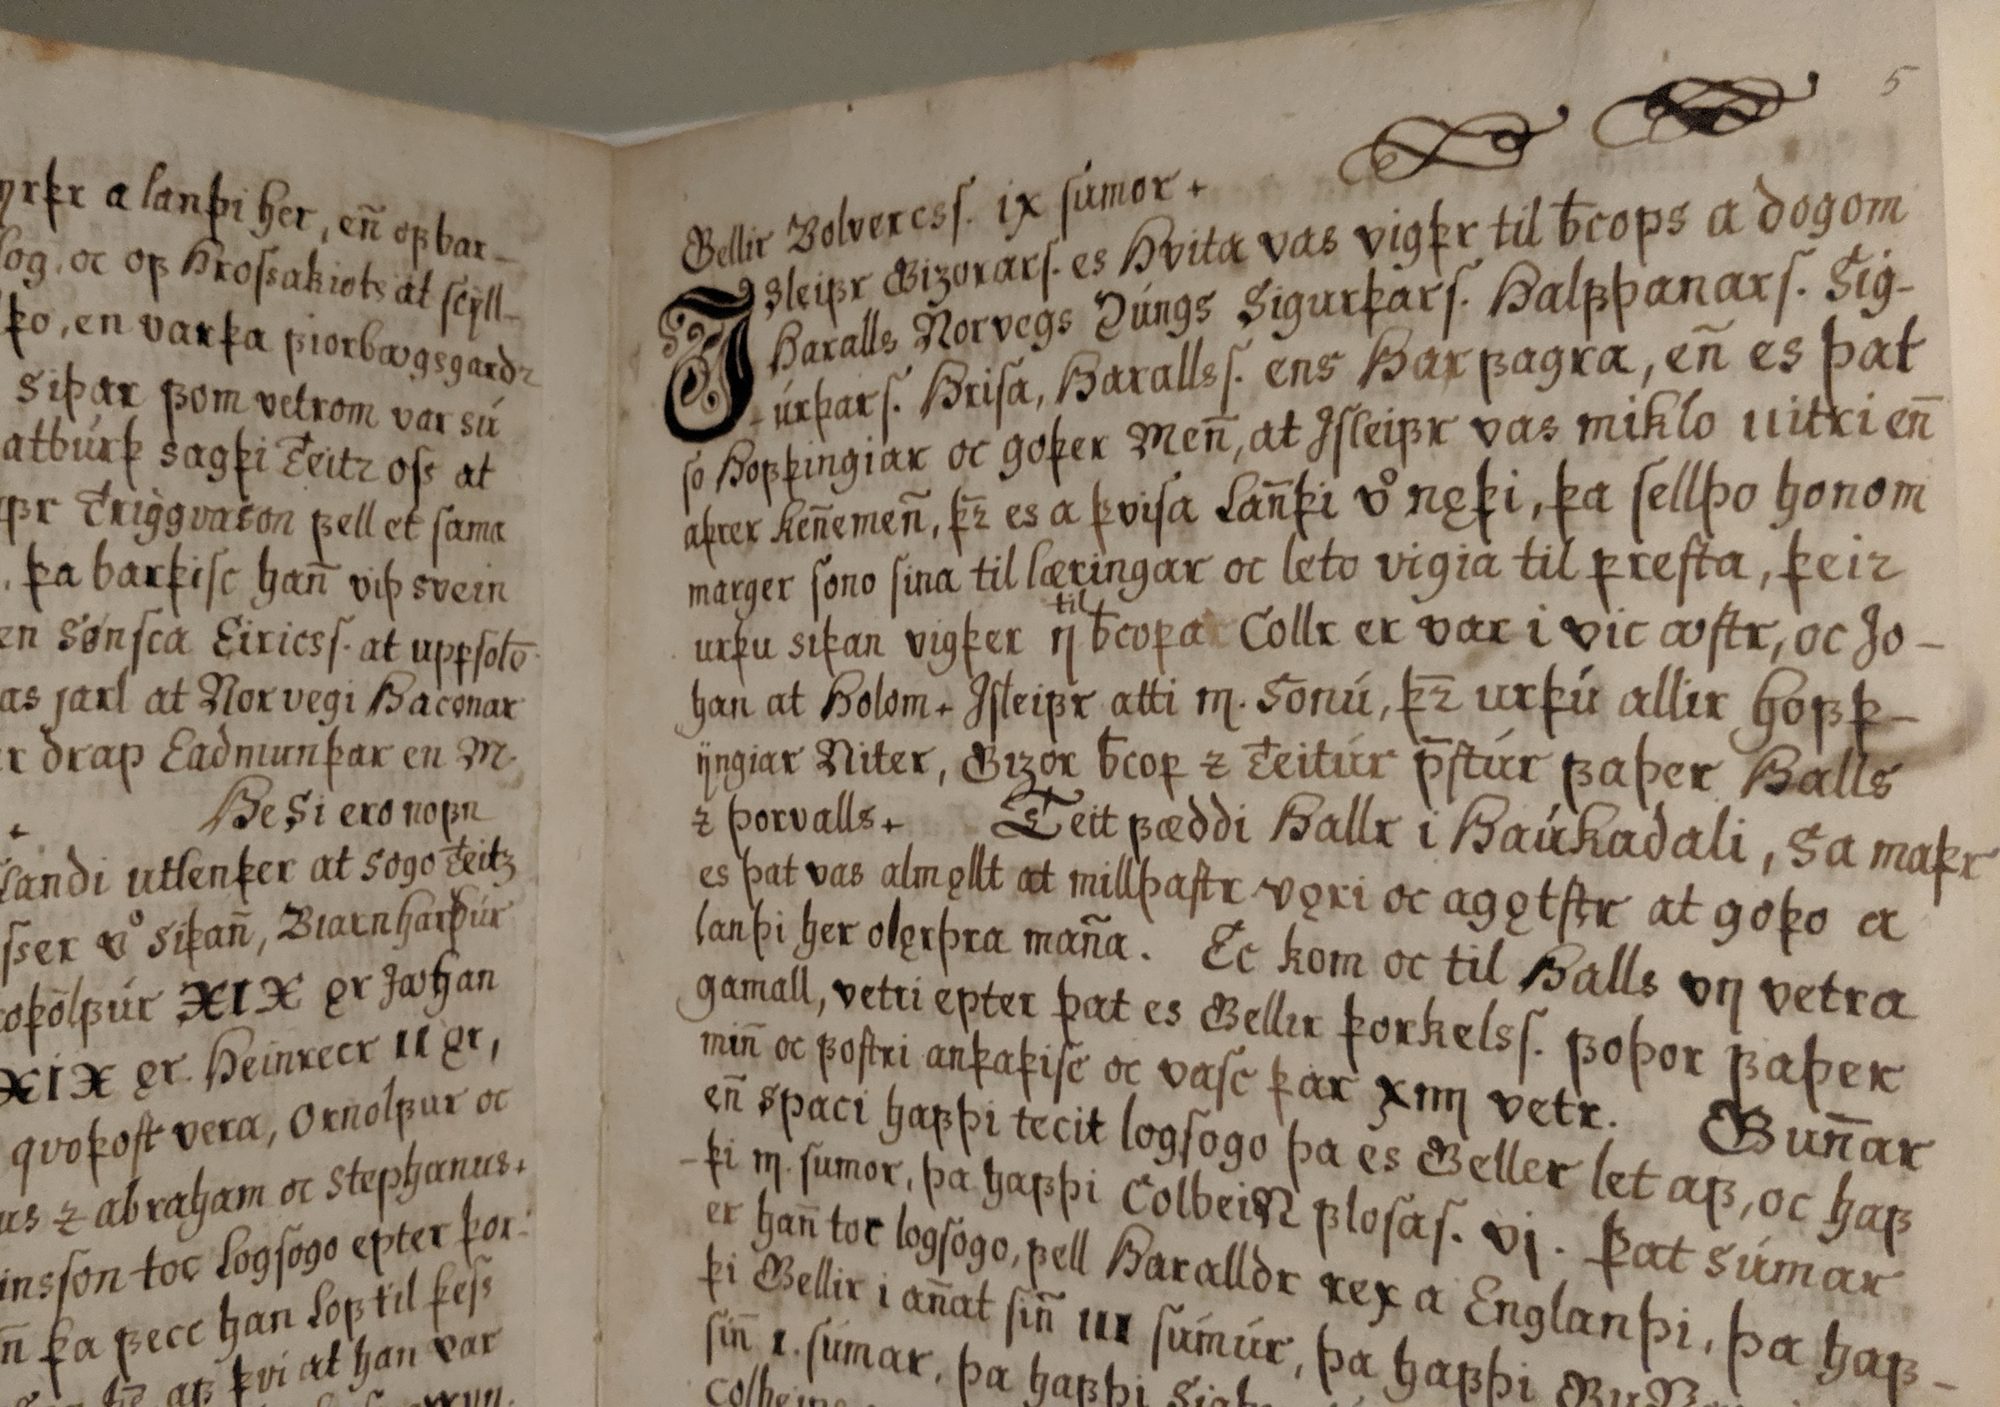 ꝩrþr a lanþi her, en̄ oꝼ bar-
log. oc oꝼ Hroſsakiots at ſcẏll-
þo, en varþa ꝼiorbꜹgsgardz
Siþar ꝼom vetrom var sú
atbúrþ sagþi Teitr oſs at
Triggvason ꝼell et ſama
, þa barþiſc han̄ viþ svein
en Sønſca Eiricsſ. at uppſolō
as jarl at Norvegi Haconar
r drap Eadmunþar en M.
Heſi ero noꝼn
landi utlenþer at Sogo Teitz
ſſer v° Siþan̄, Biarnharþúr
oþólꝼúr XIX ęr Jꜹhan
XIX ęr. Heinrecr II ęr,
qvoþoſt vera, Ornolꝼur oc
us ⁊ abraham oc Stephanus+
insſon toc Logſogo epter þor-
n̄ þa ꝼecc han Loꝼ til þeſs
aꝼ þvi at han var
5
Gellir Bolvercsſ. ix ſumor+
Iſleiꝼr Gizorarſ. es Hvita vas vigþr til b̄cops a dogom
Haralls Norvegs Qúngs Sigurþarſ. Halꝼþanarſ. Sig-
-úrþarſ. Hriſa, Harallsſ. ens Harꝼagra, en̄ es þat
ſo Hoꝼþingiar oc goþer Men̄, at Iſleiꝼr vas miklo uitri en̄
aþrer ken̄emen̄, þr̄ es a þviſa Lan̄þi v° nęþi, þa ſellþo honom
marger ſono ſina til læringar oc leto vigia til preſta, þeir
urþu siþan vigþer ij til b̄copa Collr er var i vic ꜹſtr, oc Jo-
han at Holom+ Iſleiꝼr atti iij. Sonú, þr̄ urþú allir hoꝼþ-
ijngiar Niter, Gizor b̄cop ⁊ Teitúr p̄ſtúr ꝼaþer Halls
⁊ þorvalls+ Teit ꝼæddi Hallr i Haúkadali, Sa maþr
es þat vas almęllt at millþaſtr vęri oc agętſtr at goþo a
lanþi her olęrþra man̄a. Ec kom oc til Halls vij vetra
gamall, vetri epter þat es Gellir þorkelsſ. ꝼoþor ꝼaþer
min̄ oc ꝼoſtri anþaþiſc oc vaſc þar xiiij vetr. Gun̄ar
en̄ Spaci haꝼþi tecit logſogo þa es Geller let aꝼ, oc haꝼ
-þi iij. ſumor, þa haꝼþi ColbeiN ꝼloſaſ. vj. þat Súmar
er han̄ toc logſógo, ꝼell Haralldr rex a Englanþi, þa haꝼ-
þi Gellir i an̄at ſin̄ III ſúmúr, þa haꝼþi
ſin̄ I. ſúmar, þa haꝼþi